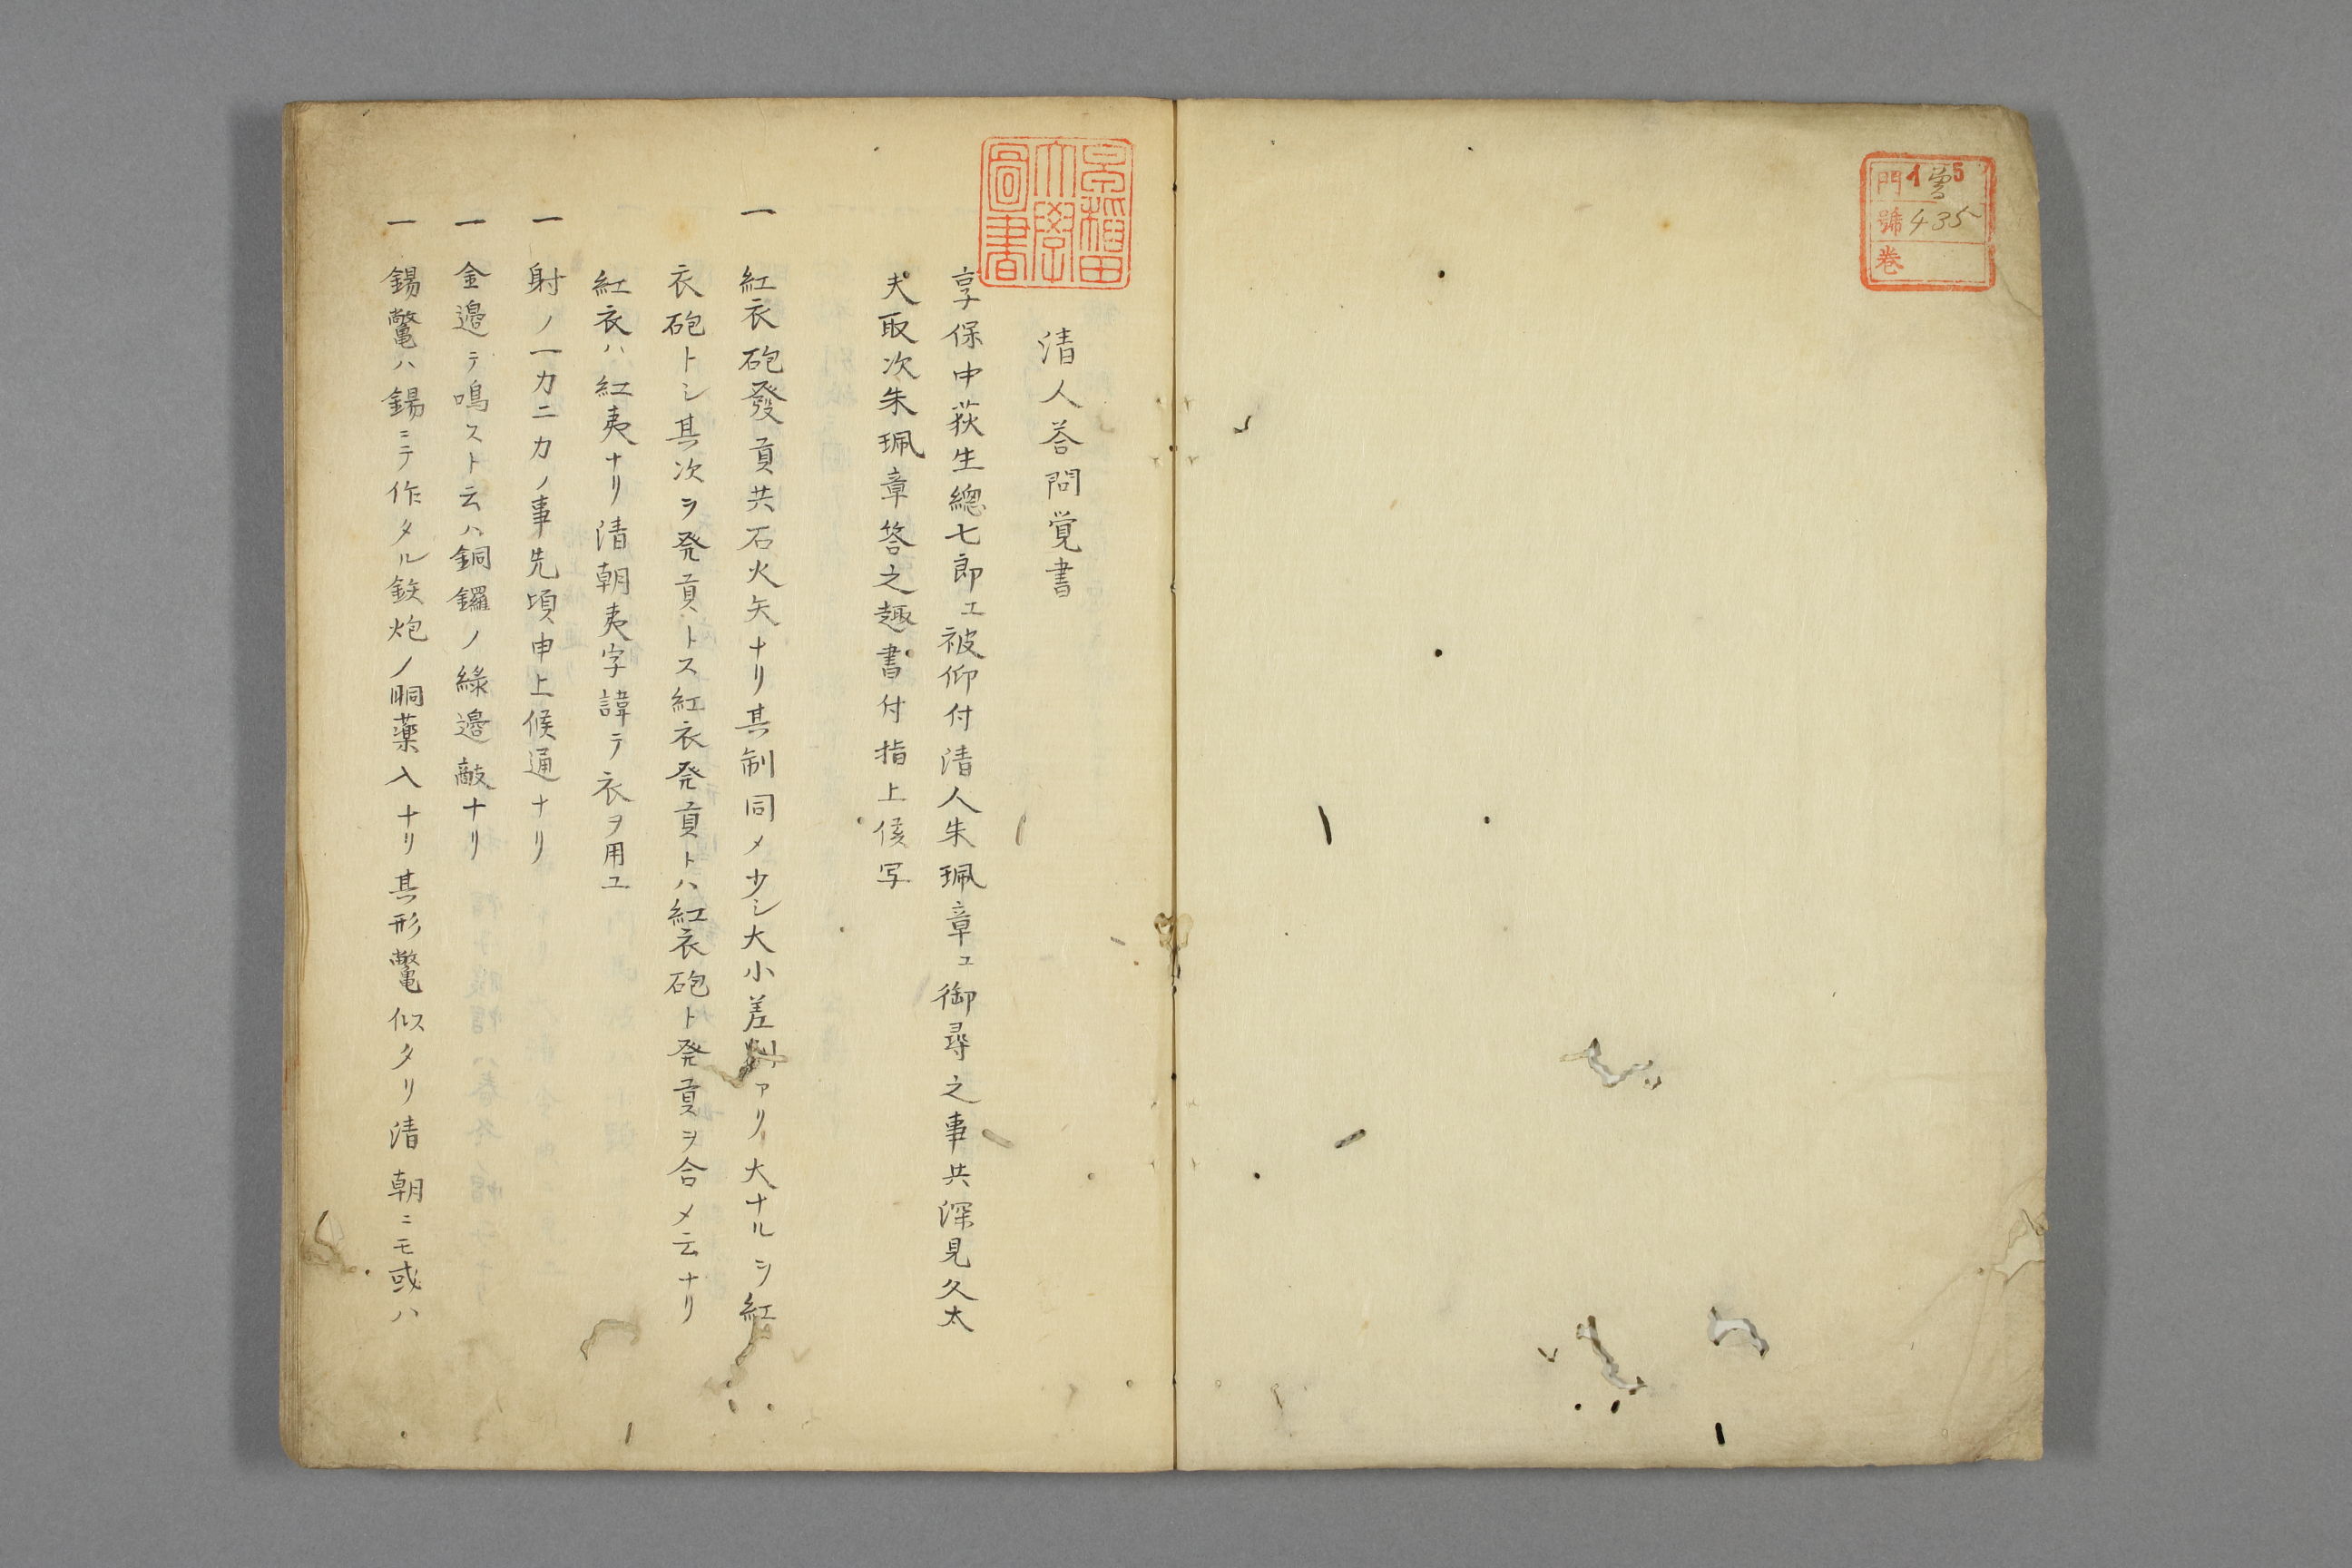 門 イ5
號 435
巻
早稲田大學圖書
清人荅問覚書
享保中荻生總七郎エ被仰付清人朱珮章エ御尋之事共深見久太
夫取次朱珮章答之趣書付指上候写
一 紅衣砲發貢共石火矢ナリ其制同メ少シ大小差別アリ大ナルヲ紅
衣砲トシ其次ヲ発貢トス紅衣発貢トハ紅衣砲ト発貢ヲ合メ云ナリ
紅衣ハ紅夷ナリ清朝夷字諱テ衣ヲ用ユ
一 射ノ一力二力ノ事先頃申上候通ナリ
一 金邉テ鳴スト云ハ銅鑼ノ縁邉敲ナリ
一 錫鼈ハ錫ニテ作タル鉄炮ノ胴薬入ナリ其形鼈似スタリ清朝ニモ或ハ